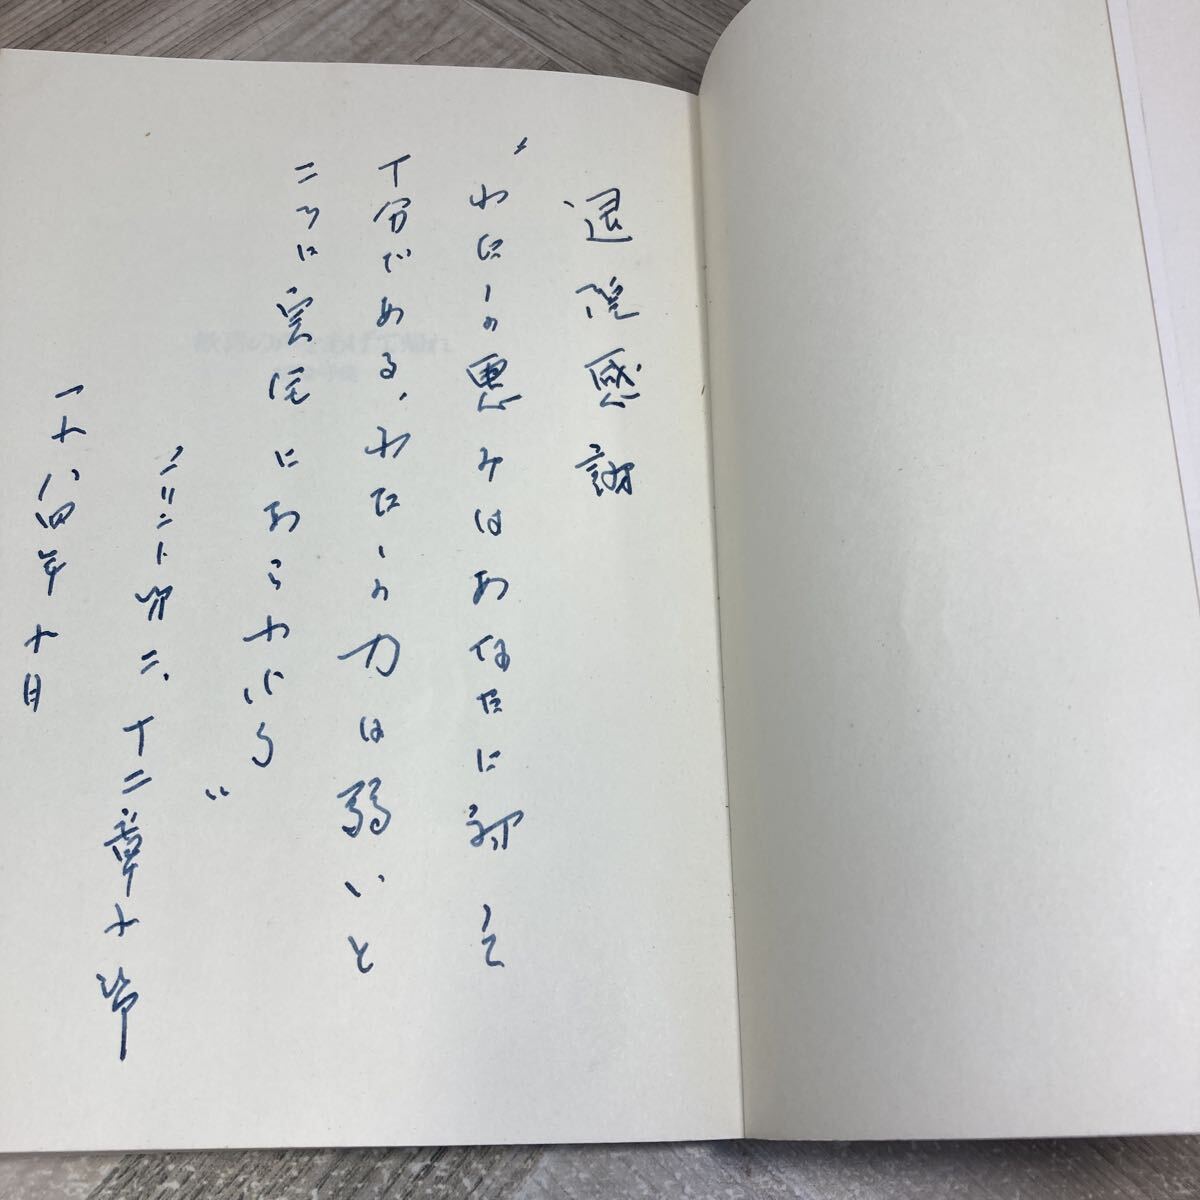 退院感謝
"わたしの恵みはあなたに対して
十分である、わたしの力は弱いと
ころに完全にあらわれる"
コリント第二、十二章十節
一九八四年十月